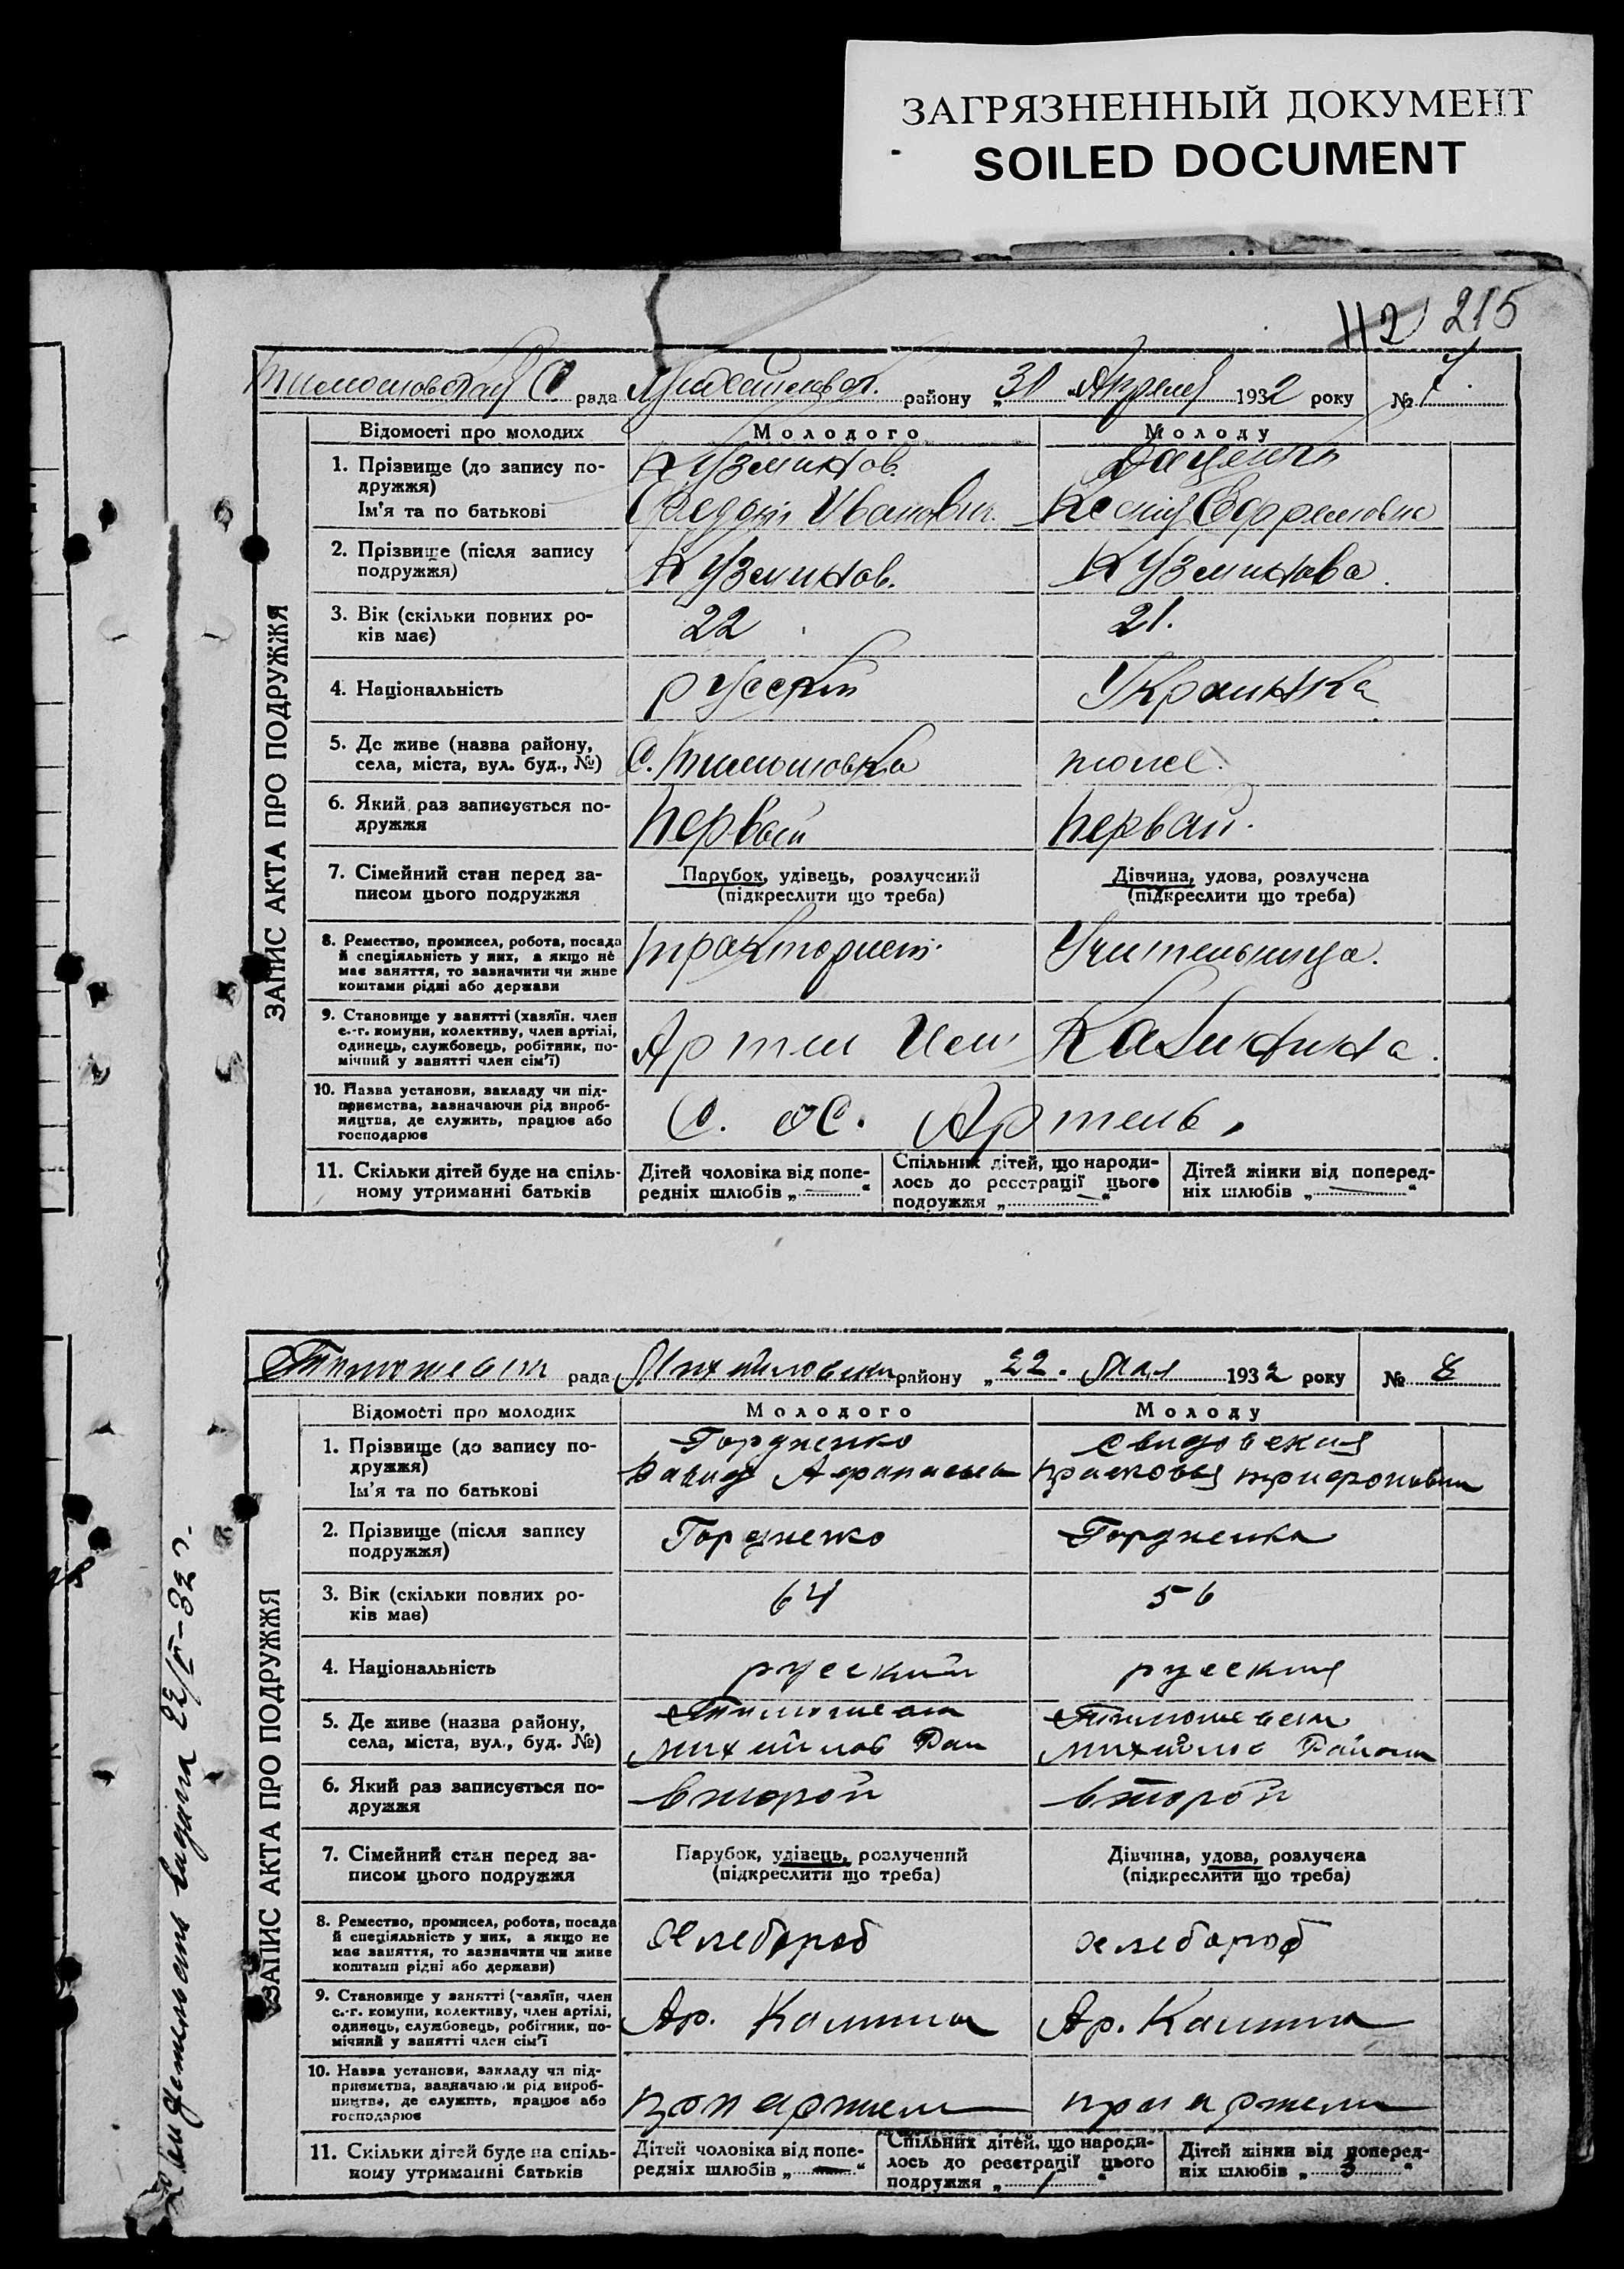 ЗАГРЯЗНЕННЫЙ ДОКУМЕНТ
SOILED DOCUMENT
112 215
рада района району „30 „Апреля 1932 року № 7.
ЗАПИС АКТА ПРО ПОДРУЖЖЯ
Відомості про молодих Молодого Молоду
1. Прізвище (до запису по-
дружжя)
Кузминов. Даценко
Ім'я та по батькові Иванович Ксения Ефремовна
2. Прізвище (після запису
подружжя)
Кузминов. Кузминова.
3. Вік (скільки повних ро-
ків має)
22 21.
4. Національність русский Украинка
5. Де живе (назва району,
села, міста, вул. буд., №)
С. Тимошовка тоже.
6. Який раз записується по-
дружжя
первый первай.
7. Сімейний стан перед за-
писом цього подружжя
Парубок, удівець, розлучений
(підкреслити що треба)
Дівчина, удова, розлучена
(підкреслити що треба)
8. Ремество, промисел, робота, посада
й спеціяльність у них, а якщо не
має заняття, то зазначити чи живе
коштами рідні або держави
тракторист. Учительница.
9. Становище у занятті (хазяїн, член
с.-г. комуни, колективу, член артілі,
одинець, службовець, робітник, по-
мічний у занятті член сім'ї)
Калинина.
10. Назва установи, закладу чи під-
приємства, зазначаючи рід вироб-
ництва, де служить, працює або
господарює
С. Х. Артель.
11. Скільки дітей буде на спіль-
ному утриманні батьків
Дітей чоловіка від попе-
редніх шлюбів „ — “
Спільних дітей, що народи-
лось до реєстрації цього
подружжя „ — “
Дітей жінки від поперед-
ніх шлюбів „ — “
рада району „22. Мая 1932 року № 8
ЗАПИС АКТА ПРО ПОДРУЖЖЯ
Відомості про молодих Молодого Молоду
1. Прізвище (до запису по-
дружжя)
Гордиенко Свидовская
Ім'я та по батькові Давид Прасковья
2. Прізвище (після запису
подружжя)
Гордиенко Гордиенка
3. Вік (скільки повних ро-
ків має)
64 56
4. Національність руский руския
5. Де живе (назва району,
села, міста, вул., буд. №)
6. Який раз записується по-
дружжя
второй второй
7. Сімейний стан перед за-
писом цього подружжя
Парубок, удівець, розлучений
(підкреслити що треба)
Дівчина, удова, розлучена
(підкреслити що треба)
8. Ремество, промисел, робота, посада
й спеціяльність у них, а якщо не
має заняття, то зазначити чи живе
коштами рідні або держави)
Хлебороб хлебороб
9. Становище у занятті (хазяїн, член
с.-г. комуни, колективу, член артілі,
одинець, службовець, робітник, по-
мічний у занятті член сім'ї
Ар. Калинина Ар. Калинина
10. Назва установи, закладу чи під-
приємства, зазначаючи рід вироб-
ництва, де служить, працює або
господарює
11. Скільки дітей буде на спіль-
ному утриманні батьків
Дітей чоловіка від попе-
редніх шлюбів „ — “
Спільних дітей, що народи-
лось до реєстрації цього
подружжя „ / “
Дітей жінки від поперед-
ніх шлюбів „ 3 “